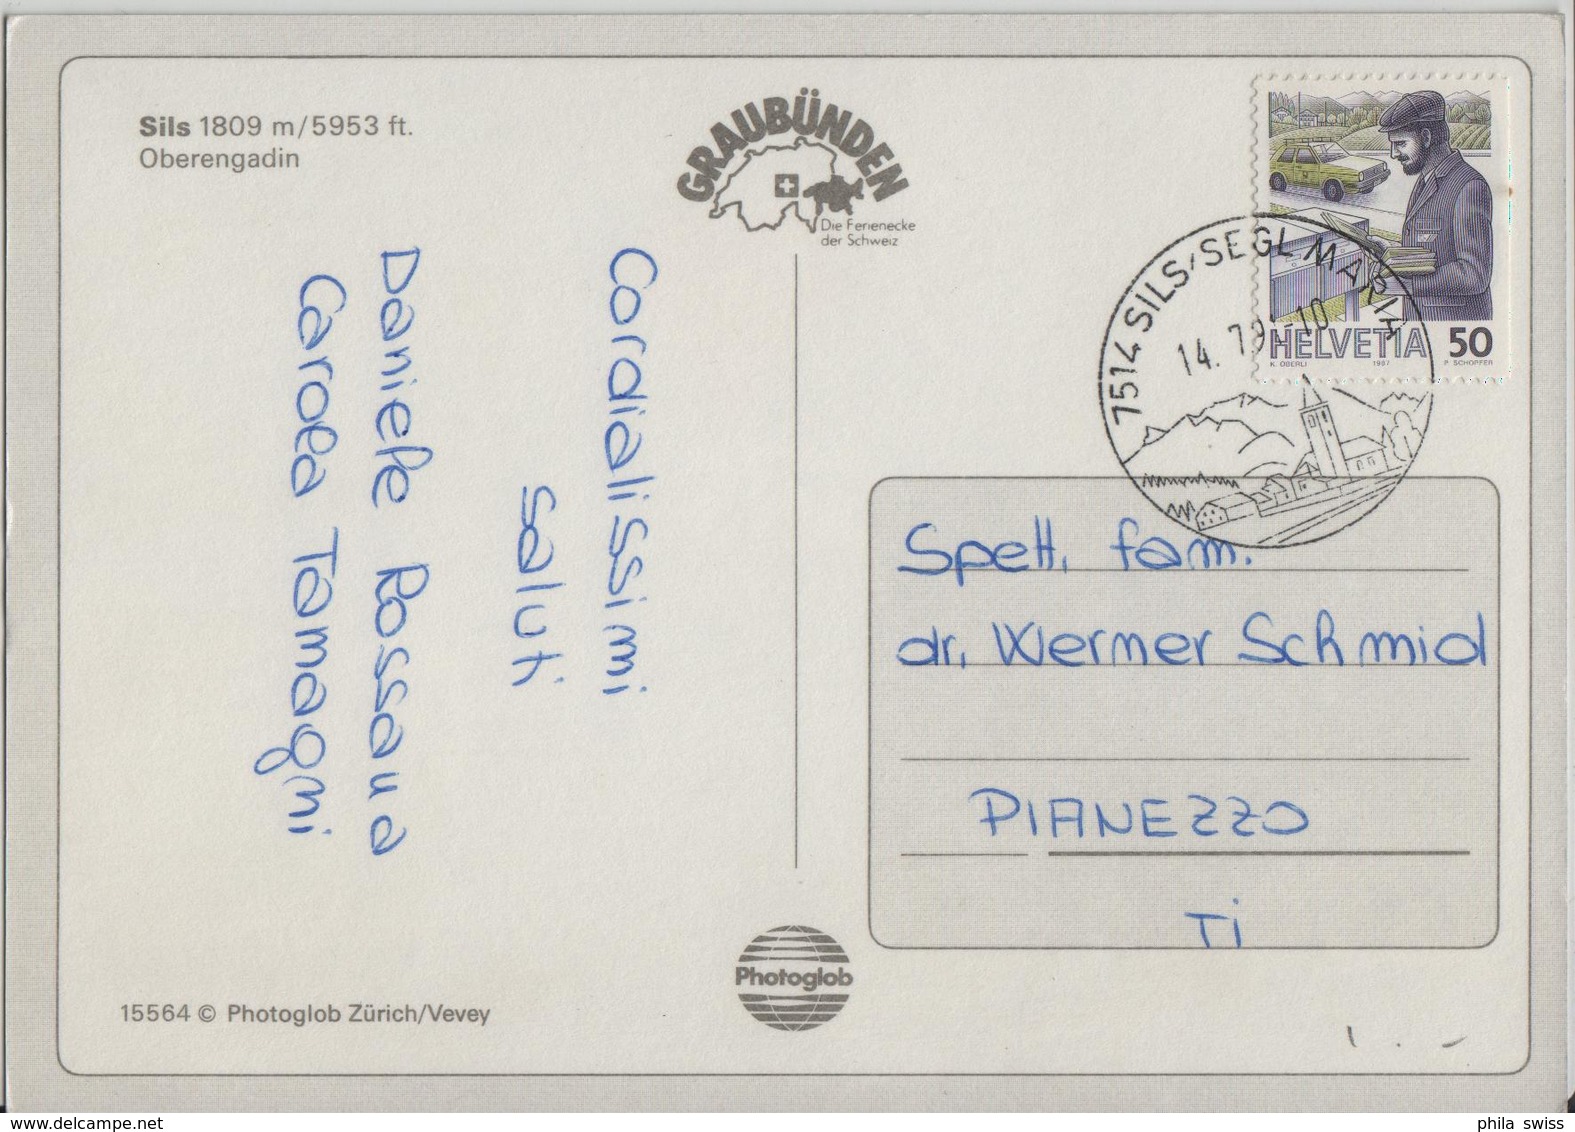 Sils 1809 m/5953 ft.
Oberengadin
GRAUBÜNDEN
Die Ferienecke
der Schweiz
Cordialissimi
saluti
Daniele Rossana
Carola Tamagni
7514 SILS/SEGL MARIA
14. 7.91-10
HELVETIA 50
K. OBERLI 1987 P. SCHOPFER
Spett. fam.
dr. Werner Schmid
PIANEZZO
Ti
Photoglob
15564 © Photoglob Zürich/Vevey
www.delcampe.net
phila swiss